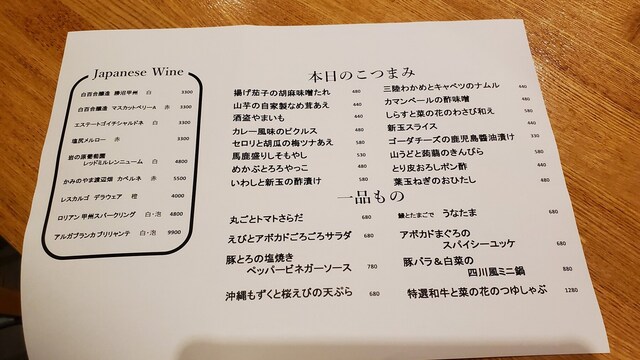 Japanese Wine
白百合醸造 勝沼甲州 白 3300
白百合醸造 マスカットベリーA 赤 3300
エステートゴイチシャルドネ 白 3300
塩尻メルロー 赤 3300
岩の原葡萄園
レッドミルレンニューム 白 4800
かみのやま渡辺畑 カベルネ 赤 5500
レスカルゴ デラウェア 橙 4000
ロリアン 甲州スパークリング 白・泡 4800
アルガブランカ ブリリャンテ 白・泡 9900
本日のこつまみ
揚げ茄子の胡麻味噌たれ 480
山芋の自家製なめ茸あえ 480
酒盗やまいも 440
カレー風味のピクルス 480
セロリと胡瓜の梅ツナあえ 580
馬鹿盛りしそもやし 530
めかぶとろろやっこ 480
いわしと新玉の酢漬け 580
三陸わかめとキャベツのナムル 440
カマンベールの酢味噌 480
しらすと菜の花のわさび和え 580
新玉スライス 330
ゴーダチーズの鹿児島醤油漬け 530
山うどと蒟蒻のきんぴら 580
とり皮おろしポン酢 440
葉玉ねぎのおひたし 480
一品もの
丸ごとトマトさらだ 680
えびとアボカドごろごろサラダ 680
豚とろの塩焼き
ペッパービネガーソース 780
沖縄もずくと桜えびの天ぷら 680
鰻とたまごで うなたま 680
アボカドまぐろの
スパイシーユッケ 680
豚バラ&白菜の
四川風ミニ鍋 880
特選和牛と菜の花のつゆしゃぶ 1280